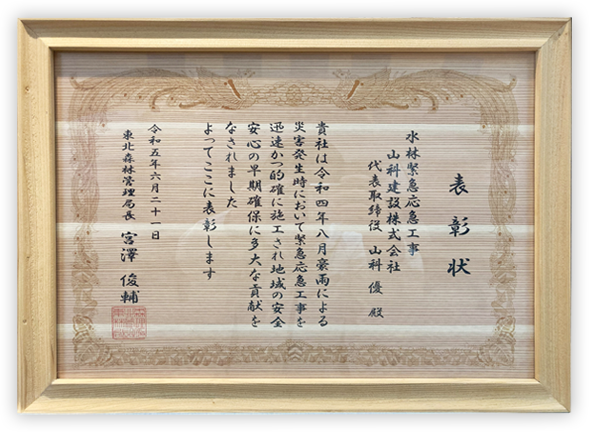 表彰状
水林緊急応急工事
山科建設株式会社
代表取締役 山科 優 殿
貴社は令和四年八月豪雨による
災害発生時において緊急応急工事を
迅速かつ的確に施工され地域の安全
安心の早期確保に多大な貢献を
なされました
よってここに表彰します
令和五年六月二十一日
東北森林管理局長 宮澤 俊輔